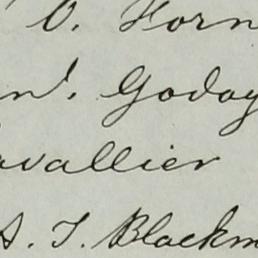 O. Horn
n'. Goday
avallier
A. T. Blackm